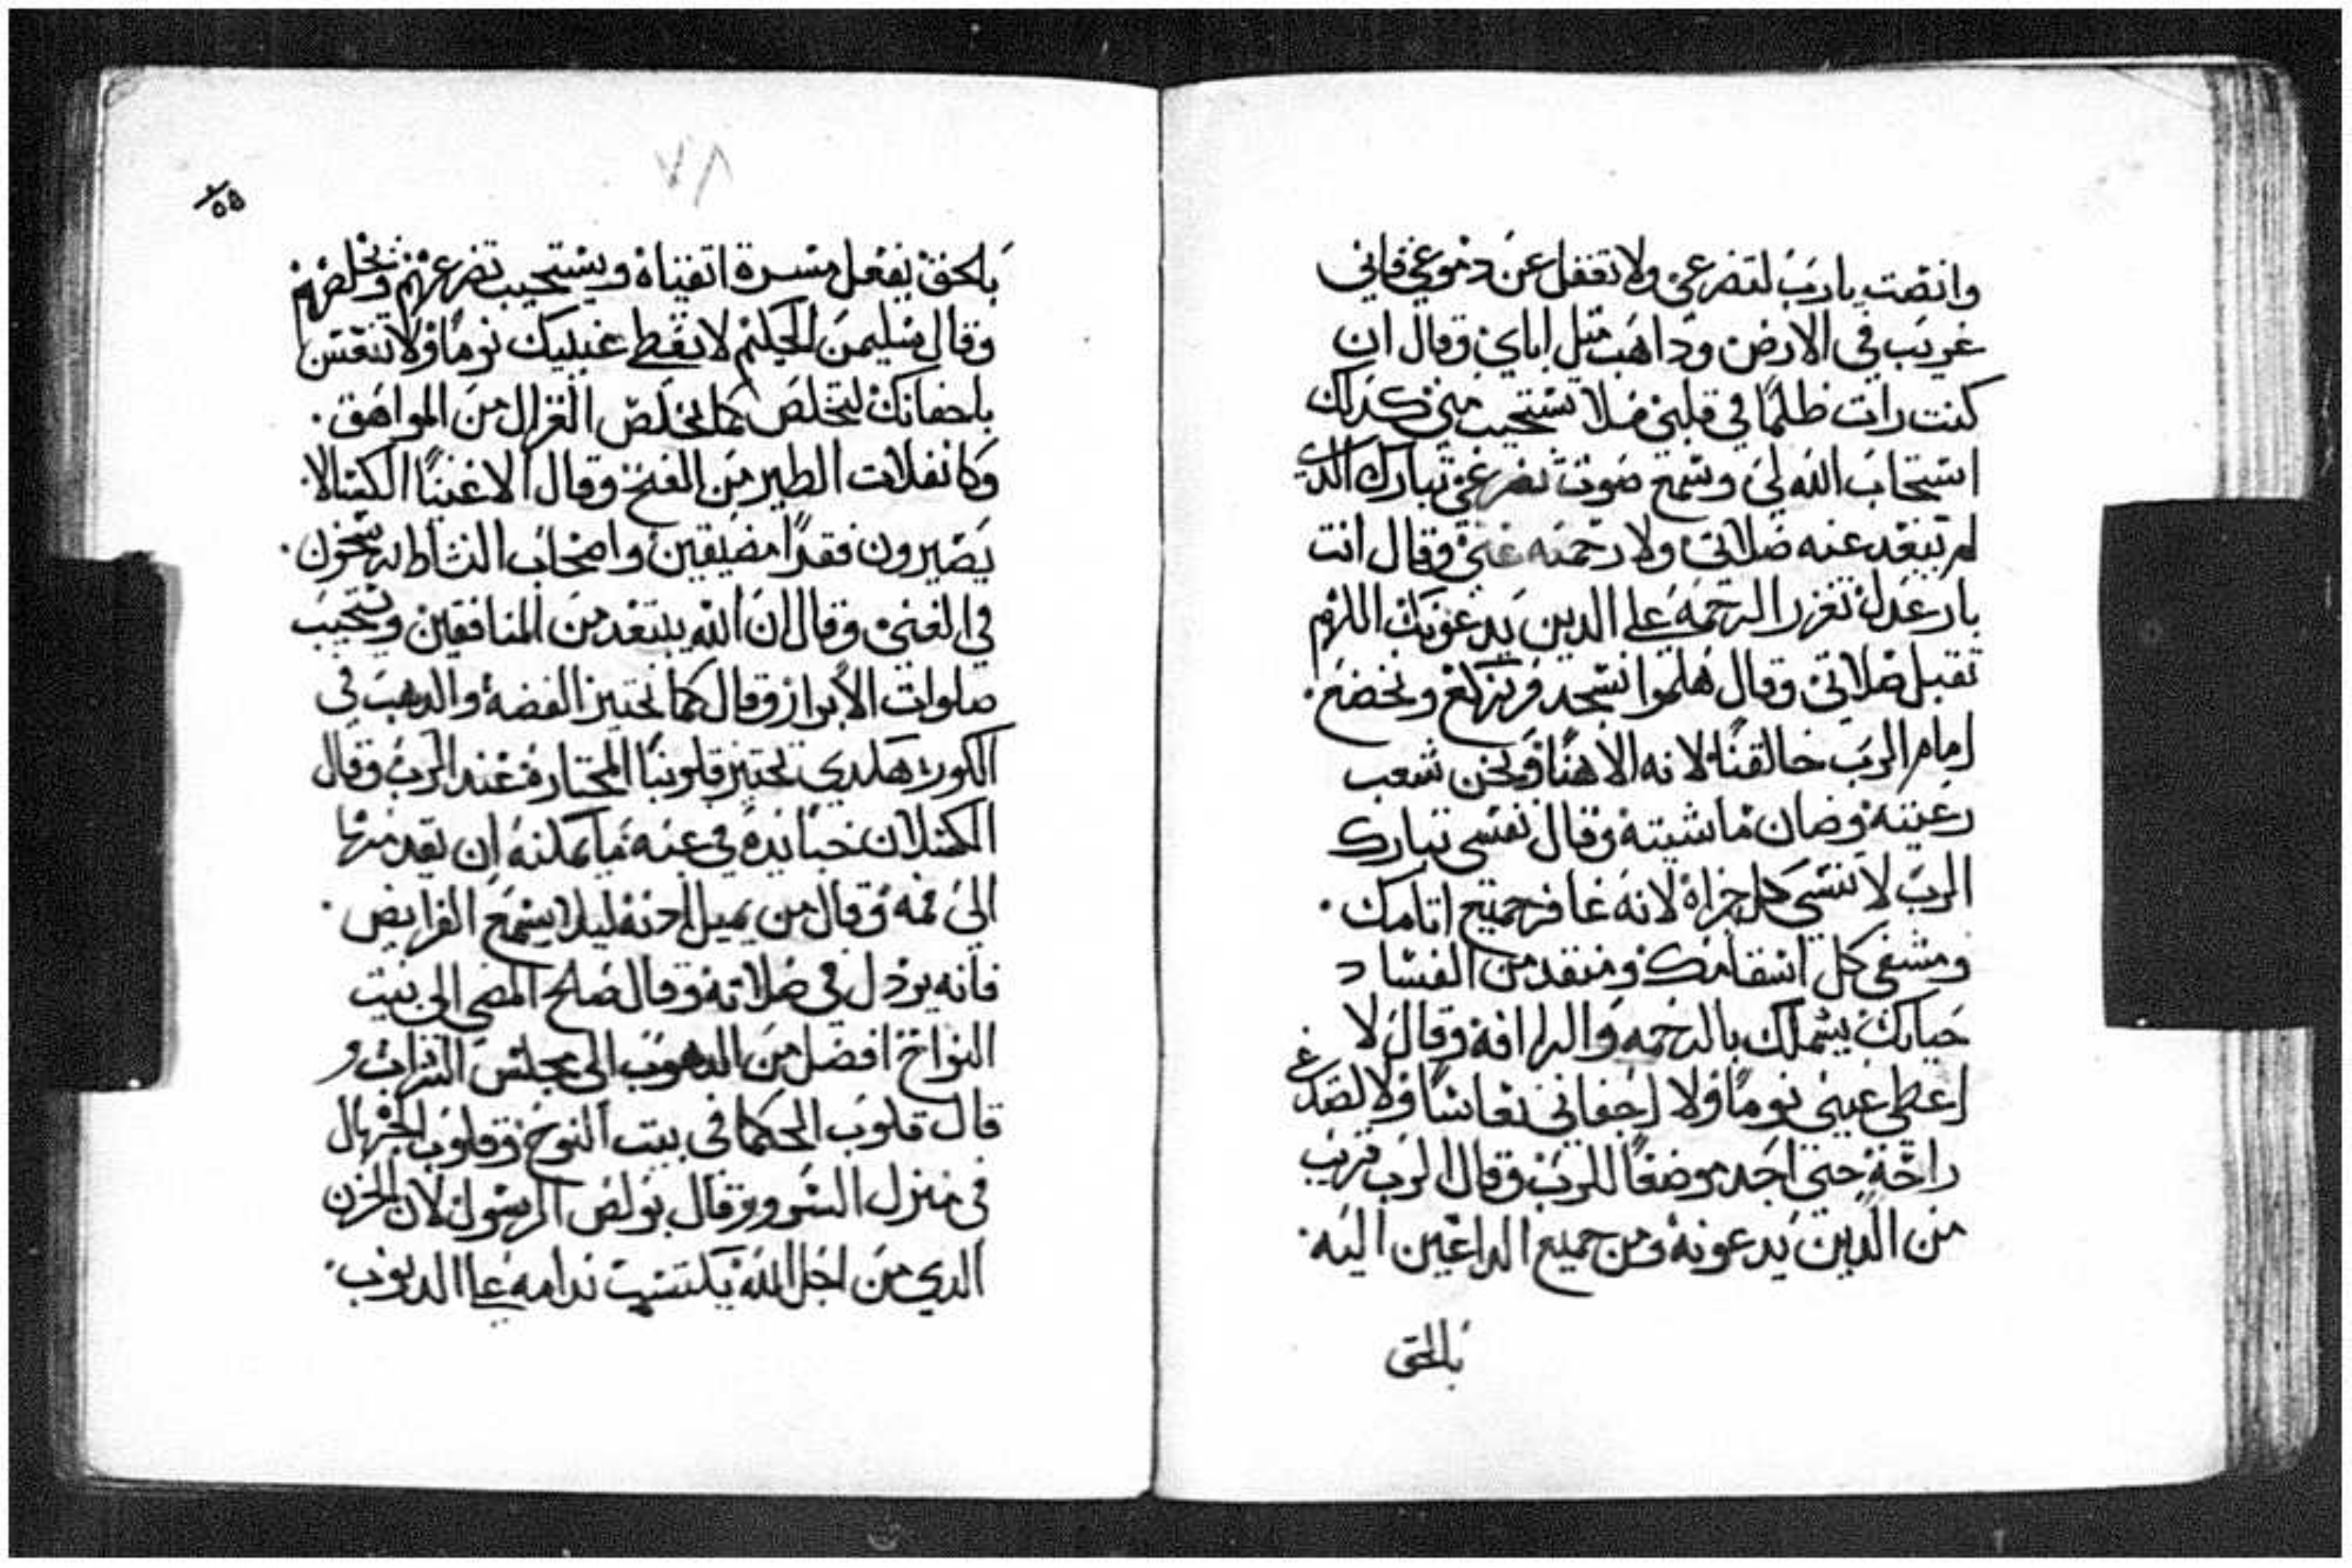 وانصت يارب لتضرعي ولا تغفل عن دموعي فاني
غريب في الارض وداهب متل اباي وقال ان
كنت رات ظلمًا في قلبي فلا تستجيب مني كدلك
استجاب الله لي وسمع صوت تضرعي تبارك الدي
لم تبعد عنه صلاتي ولا رحمته عني وقال انت
يارب عدلك تغزر الرحمه على الدين يدعونك اللهم
تقبل صلاتي وقال هلموا نسجد ونركع ونخضع ٠
امام الرب خالقنا لانه الاهنا ونحن شعب
رعيته وضان ماشيته وقال نفسي تبارك
الرب لا تنسي كل جزاه لانه غافر جميع اتامك ٠
ومشفي كل اسقامك ومنقد من الفساد
حياتك يشملك بالرحمه والرافه وقال لا
اعطي عيني نومًا ولا اجفاني نعاسًا ولا لصدغي
راحة حتى اجد موضعًا للرب وقال الرب قريب
من الدين يدعونه ومن جميع الداعين اليه ٠
بالحق
٧٨
٥٥
بالحق يفعل مسرة اتقياه ويستجيب تضرعهم ويخلصهم
وقال سليمن الحكيم لا تعط عينيك نومًا ولا تنعس
باجفانك لتخلص كما يخلص الغزال من المواهق ٠
وكانفلات الطير من الفخ وقال الاغنيا الكسالا
يصيرون فقرًا مضيقين واصحاب النشاط يرسخون ٠
في الغني وقال ان الله يبتعد من المنافقين ويستجيب
صلوات الابرار وقال كما تختبر الفضة والدهب في
الكور هكدي تختبر قلوبنا المختارة عند الرب وقال
الكسلان خبا يده في عبه ما يمكنه ان يقدمها
الي فمه وقال من يميل ادنه ليلا يسمع الفرايض ٠
فانه يردل في صلاته وقال صلح المضي الى بيت
النواح افضل من الدهوب الى مجلس الشراب و
قال قلوب الحكما في بيت النوح وقلوب الجهال
في منزل السرور وقال بولص الرسول لان الحزن
الدي من اجل الله يكتسب ندامه علي الدنوب ٠